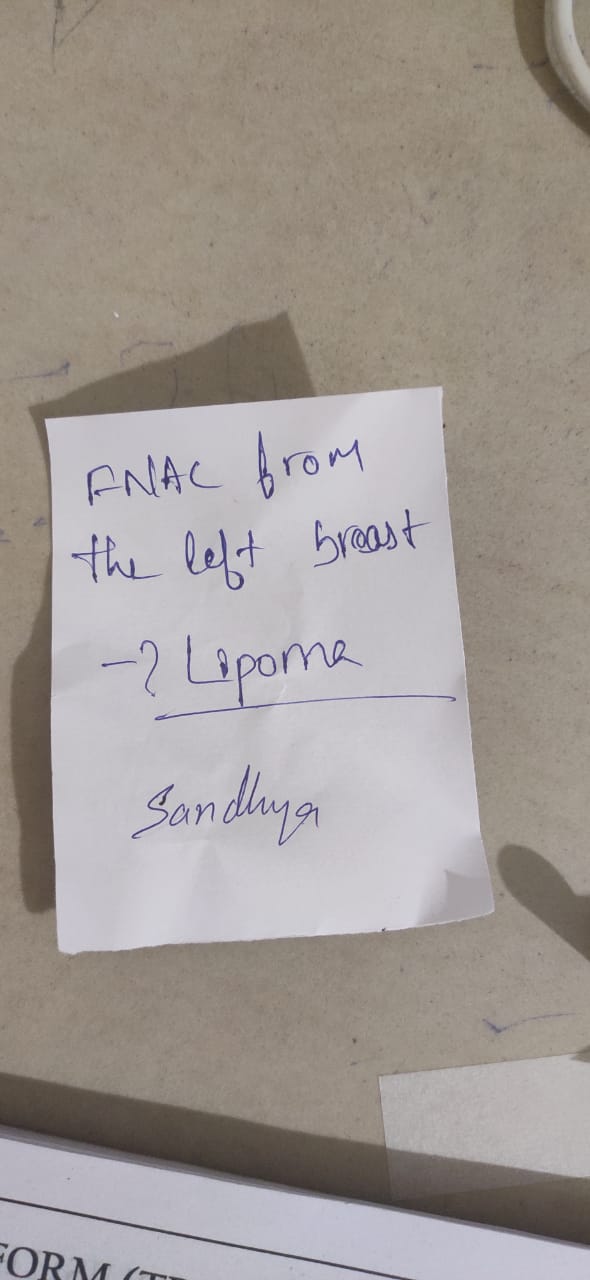 FNAC from
the left breast
-? Lipoma
Sandhya
FORM